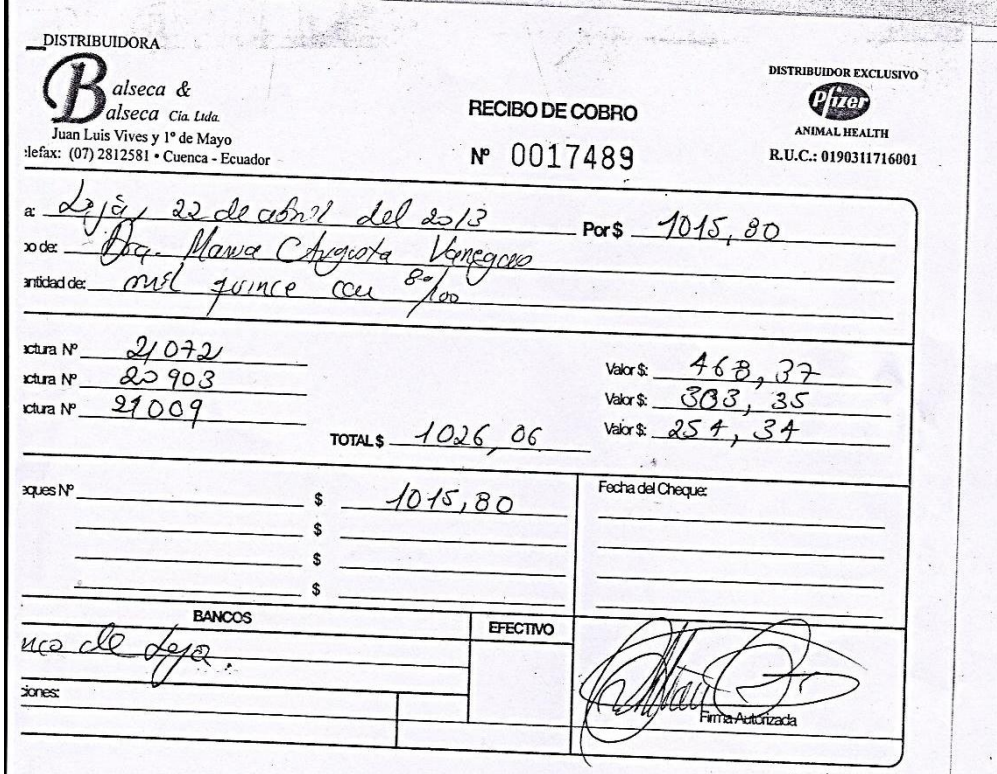 DISTRIBUIDORA
Balseca &
Balseca Cía. Ltda.
Juan Luis Vives y 1º de Mayo
elefax: (07) 2812581 • Cuenca - Ecuador
RECIBO DE COBRO
Nº 0017489
DISTRIBUIDOR EXCLUSIVO
Pfizer
ANIMAL HEALTH
R.U.C.: 0190311716001
a: Loja, 22 de abril del 2013 Por $ 1015,80
bo de: Dra. Maria Augusta Vanegas
antidad de: mil quince con 80/100
actura Nº 21072 Valor $: 468,37
actura Nº 20903 Valor $: 303,35
actura Nº 21009 Valor $: 254,34
TOTAL $ 1026,06
eques Nº $ 1015,80
$
$
$
Fecha del Cheque:
BANCOS EFECTIVO
nco de Loja.
ciones:
Firma Autorizada